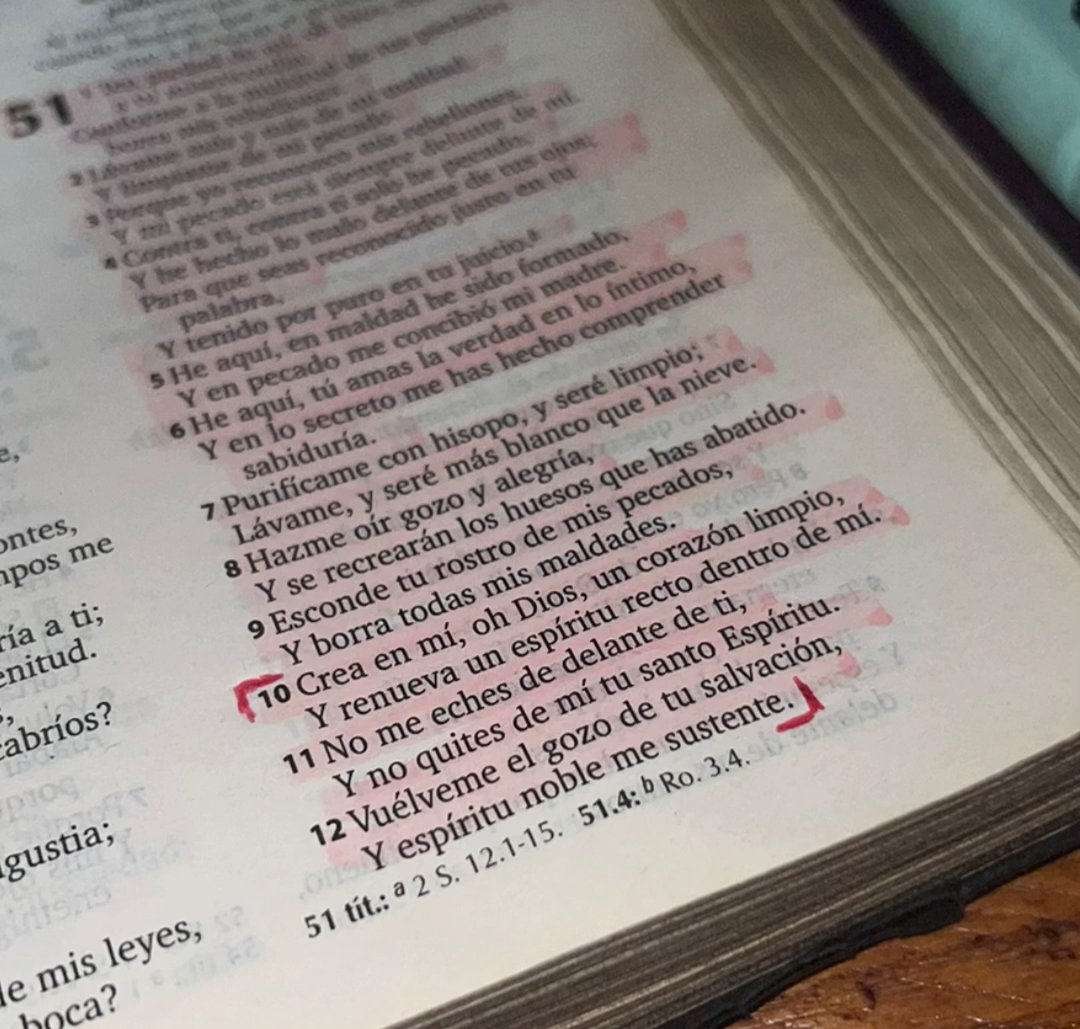 51
2
3 Porque yo reconozco mis rebeliones,
Y mi pecado está siempre delante de mí.
4 Contra ti, contra ti solo he pecado,
Y he hecho lo malo delante de tus ojos;
Para que seas reconocido justo en tu
palabra,
Y tenido por puro en tu juicio.b
5 He aquí, en maldad he sido formado,
Y en pecado me concibió mi madre.
6 He aquí, tú amas la verdad en lo íntimo,
Y en lo secreto me has hecho comprender
sabiduría.
7 Purifícame con hisopo, y seré limpio;
Lávame, y seré más blanco que la nieve.
8 Hazme oír gozo y alegría,
Y se recrearán los huesos que has abatido.
9 Esconde tu rostro de mis pecados,
Y borra todas mis maldades.
10 Crea en mí, oh Dios, un corazón limpio,
Y renueva un espíritu recto dentro de mí.
11 No me eches de delante de ti,
Y no quites de mí tu santo Espíritu.
12 Vuélveme el gozo de tu salvación,
Y espíritu noble me sustente.
51 tít.: a 2 S. 12.1-15. 51.4: b Ro. 3.4.
e,
ontes,
npos me
ría a ti;
enitud.
cabríos?
gustia;
de mis leyes,
boca?